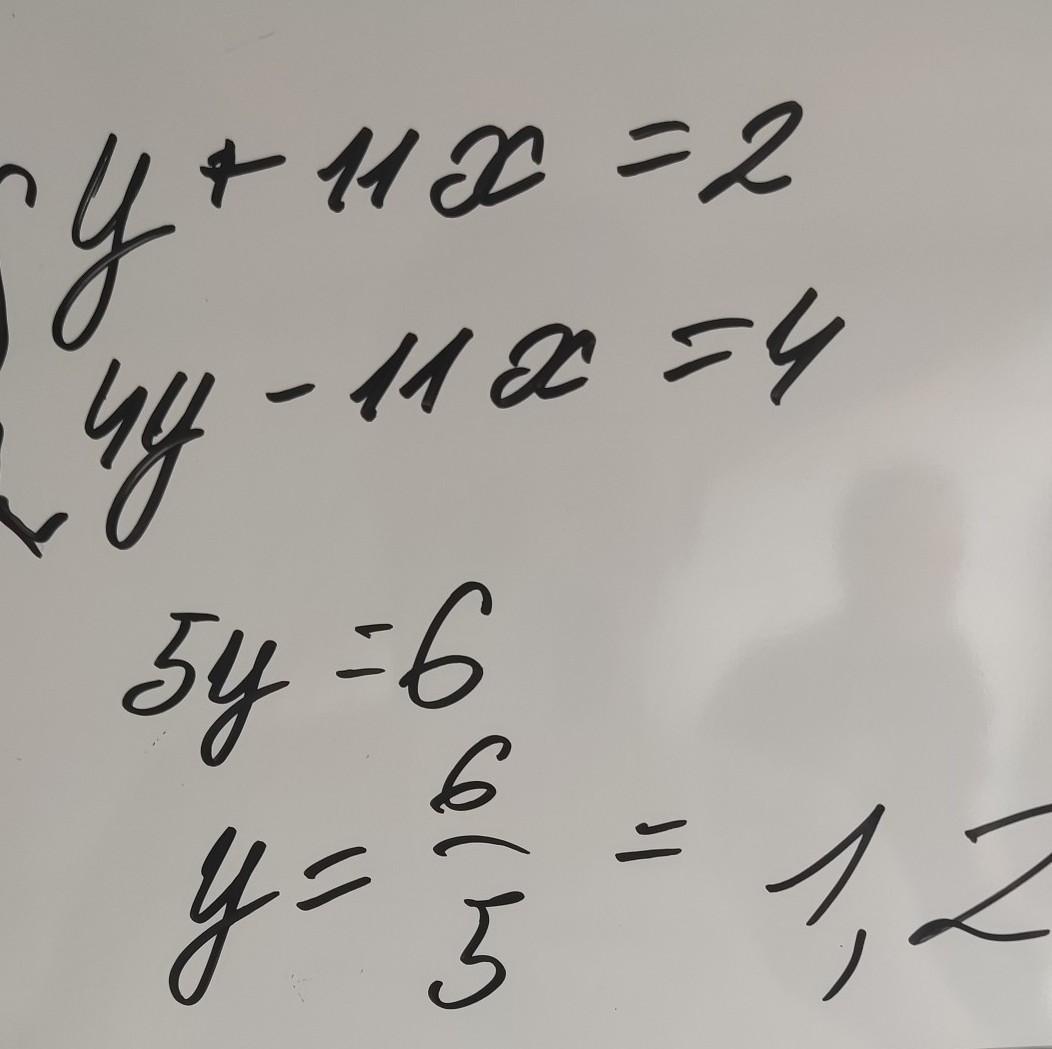 y + 11x = 2
4y - 11x = 4
5y = 6
y = 6/5 = 1,2